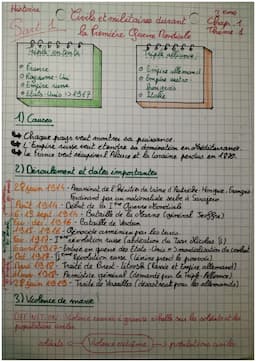 Histoire
3ème
Chap. 1
Thème 1
Civils et militaires durant
la Première Guerre Mondiale
Triple entente
• France
• Royaume-Uni
• Empire russe
• Etats-Unis → 1917
Triple alliance
• Empire allemand
• Empire austro-
hongrois
• Italie
1) Causes
↳ Chaque pays veut montrer sa puissance.
↳ L'Empire russe veut étendre sa domination en Méditerranée.
↳ La France veut récupérer l'Alsace et la Lorraine perdus en 1870.
2) Déroulement et dates importantes
28 juin 1914 - Assassinat de l'héritier du trône d'Autriche-Hongrie, François
Ferdinand par un nationaliste serbe à Sarajevo
Août 1914 - Début de la 1ère Guerre Mondiale
6-13 sept. 1914 - Bataille de la Marne (général Joffre)
1916 - Bataille de Verdun
1915-1916 - Génocide arménien par les turcs
1917 - 1ère révolution russe (abdication du Tsar Nicolas II)
1917 - Entrée en guerre des Etats-Unis → mondialisation du conflit
Oct. 1917 - Révolution russe (Lénine prend le pouvoir)
1918 - Traité de Brest-Litovsk (Russie et Empire allemand)
1918 - Armistice
28 juin 1919 - Traité de Versailles (désastreux pour les allemands)
3) Violence de masse
DEFINITION: Violence à grande échelle sur les soldats et les
populations civiles.
soldats ← Violence extrême → populations civiles